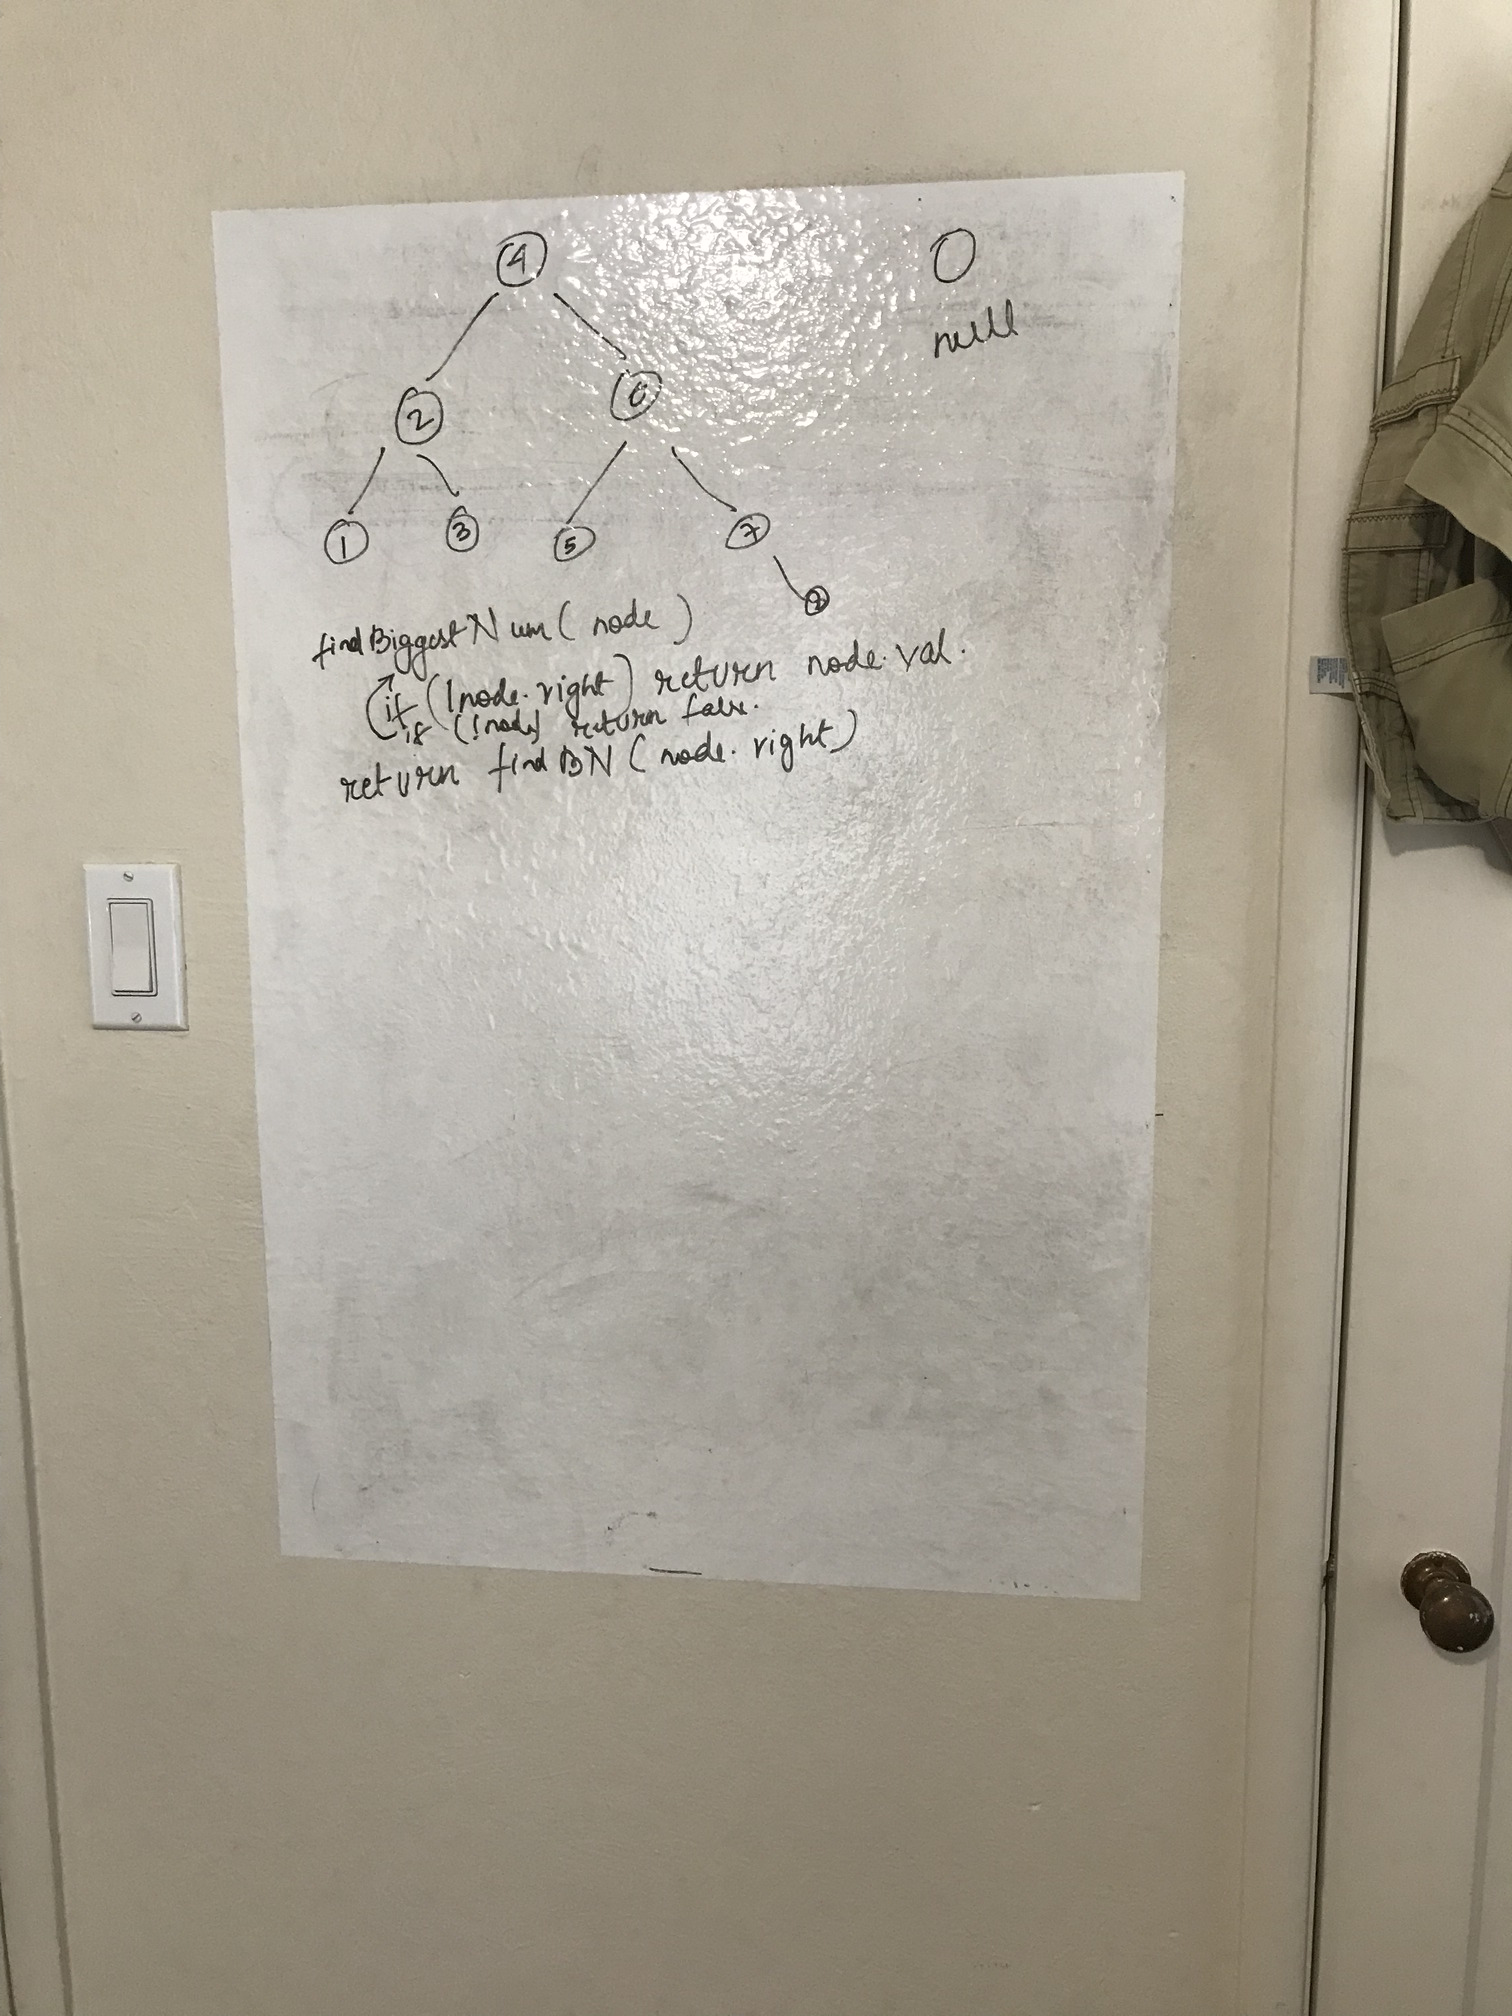 4
null
2
6
1
3
5
7
findBiggestNum( node )
if (!node.right) return node.val.
if (!node) return false.
return findBN ( node.right)